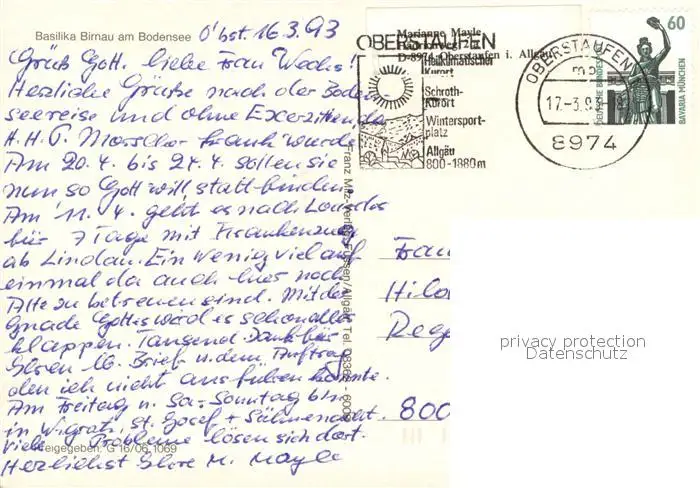 Basilika Birnau am Bodensee
O'bst. 16.3.93
Grüß Gott. liebe Frau Wechs!
Herzliche Grüße nach der Boden
seereise und ohne Exerzitien da
H.H.P. krank wurde
Am 20.4. bis 24.4. sollen sie
nun so Gott will, stattfinden.
Am 11.4. geht es nach Lourdes
für 7 Tage mit Krankenzug
ab Lindau. Ein wenig viel auf
einmal da auch hier noch
Alte zu betreuen sind. Mit der
Gnade Gottes wird es schon alles
klappen. Tausend Dank für
Ihren lb. Brief u. dem Auftrag
den ich nicht ausführen konnte.
Am Freitag u. Sa-Sonntag bin
in Wigratz, St. Josef + Sühnenacht.
Viele Probleme lösen sich dort.
Herzlichst Ihre M. Mayle
Freigegeben: G 16/06 1069
Franz Milz-Verlag Füssen/Allgäu Tel. 0836
Marianne Mayle
D-8974 Oberstaufen i. Allgäu
OBERSTAUFEN
Heilklimatischer
Kurort
Schroth-
Kurort
Wintersport-
platz
Allgäu
800-1880 m
OBERSTAUFEN
mb
17.-3.93
8974
60
DEUTSCHE BUNDESPOST
BAVARIA MÜNCHEN
Frau
Hild
Reg
800
privacy protection
Datenschutz